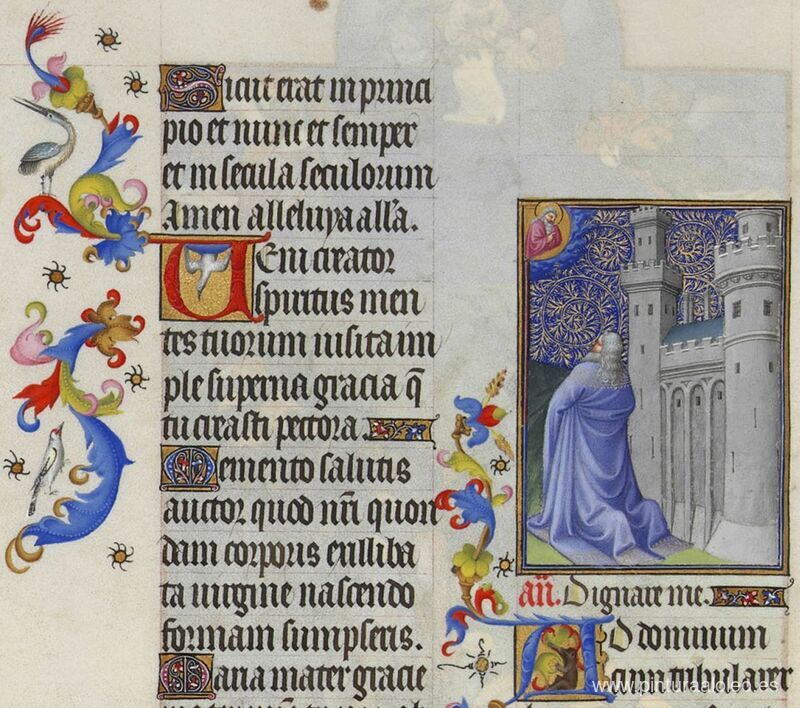 Sicut erat in princi
pio et nunc et semper
et in secula seculorum
Amen alleluya all'a.
Veni creator
spiritus men
tes tuorum uisita im
ple superna gracia q̄
tu creasti pectora.
Memento salutis
auctor quod nr̄i quon
dam corporis ex illiba
ta uirgine nascendo
formam sumpseris.
Maria mater gracie
an̄. Dignare me.
AD dominum
cum tribularer
www.pinturaaloleo.es